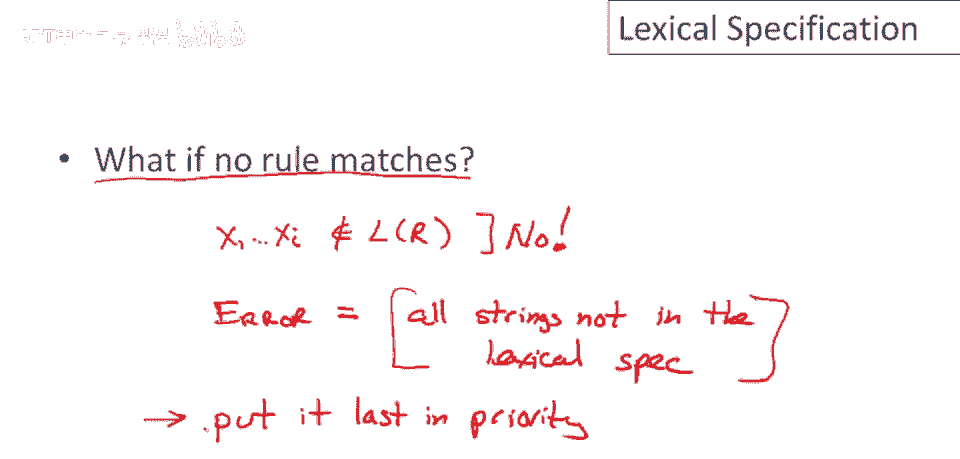 Lexical Specification
• What if no rule matches?
X₁...Xᵢ ∉ L(R) ] No!
ERROR = [all strings not in the
lexical spec]
→ .put it last in priority